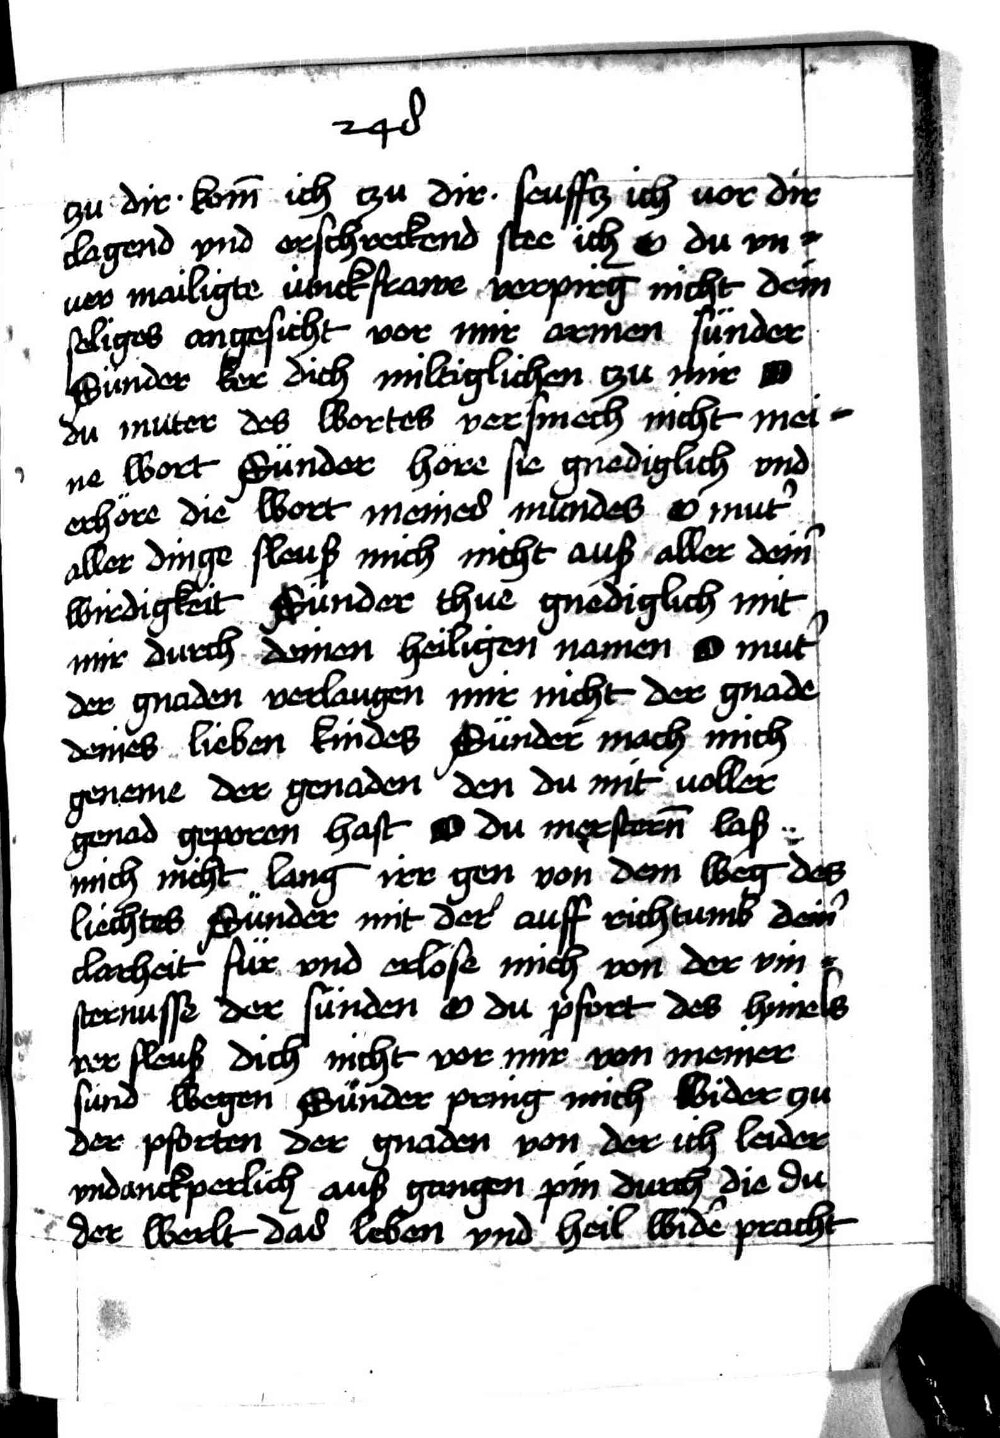 248
tzu dir · kom̄ ich tzu dir · seufftz ich vor dir
clagend vnd erschreckend stee ich O du vn=
uer mailigte iunckfrawe verpirg nicht dein
seliges angesicht vor mir armen sünder
Sünder ker dich miltiglichen tzu mir O
du muter des wortes versmech nicht mei=
ne wort Sünder höre sie gnediglich vnd
erhöre die wort meines mundes O mut'
aller dinge sleuß mich nicht auß aller dein'
wirdigkeit Sünder thue gnediglich mit
mir durch deinen heiligen namen O mut'
der gnaden verlaugen mir nicht der gnade
deines lieben kindes Sünder mach mich
geneme der genaden den du mit voller
genad geporen hast O du merstern̄ laß
mich nicht lang irr gen von dem weg des
liechtes Sünder mit der auff richtumb dein'
clarheit für vnd erlöse mich von der vin=
sternusse der sünden O du pfort des himels
ver sleuß dich nicht vor mir von meiner
sund wegen Sünder pring mich wider zu
der pforten der gnaden von der ich leider
vndanckperlich auß gangen pin durch die du
der werlt das leben vnd heil wid' pracht